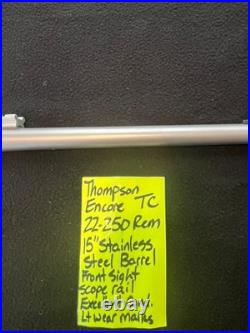 Thompson
Encore TC
22-250 Rem
15" Stainless
Steel Barrel
Front Sight
scope rail
Lt wear